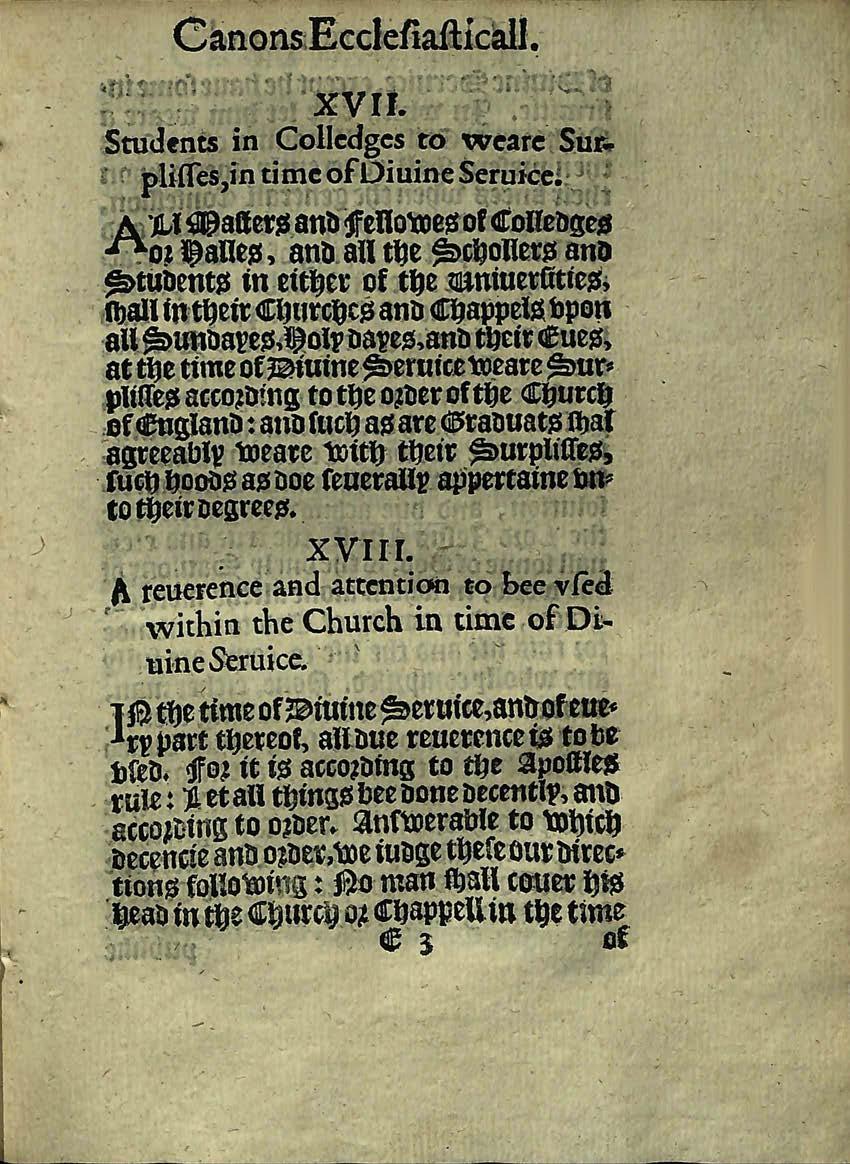 Canons Eccleſiaſticall.
XVII.
Students in Colledges to weare Sur-
pliſſes, in time of Diuine Seruice.
ALl Maſters and Fellowes of Colledges
or Halles, and all the Schollers and
Students in either of the Uniuerſities,
ſhall in their Churches and Chappels vpon
all Sundayes, Holy dayes, and their Eues,
at the time of Diuine Seruice weare Sur-
pliſſes according to the order of the Church
of England: and ſuch as are Graduats ſhal
agreeably weare with their Surpliſſes,
ſuch hoods as doe ſeuerally appertaine vn-
to their degrees.
XVIII.
A reuerence and attention to bee vſed
within the Church in time of Di-
uine Seruice.
IN the time of Diuine Seruice, and of eue-
ry part thereof, all due reuerence is to be
vſed. For it is according to the Apoſtles
rule: Let all things bee done decently, and
according to order. Anſwerable to which
decencie and order, we iudge theſe our direc-
tions following: No man ſhall couer his
head in the Church or Chappell in the time
E 3 of